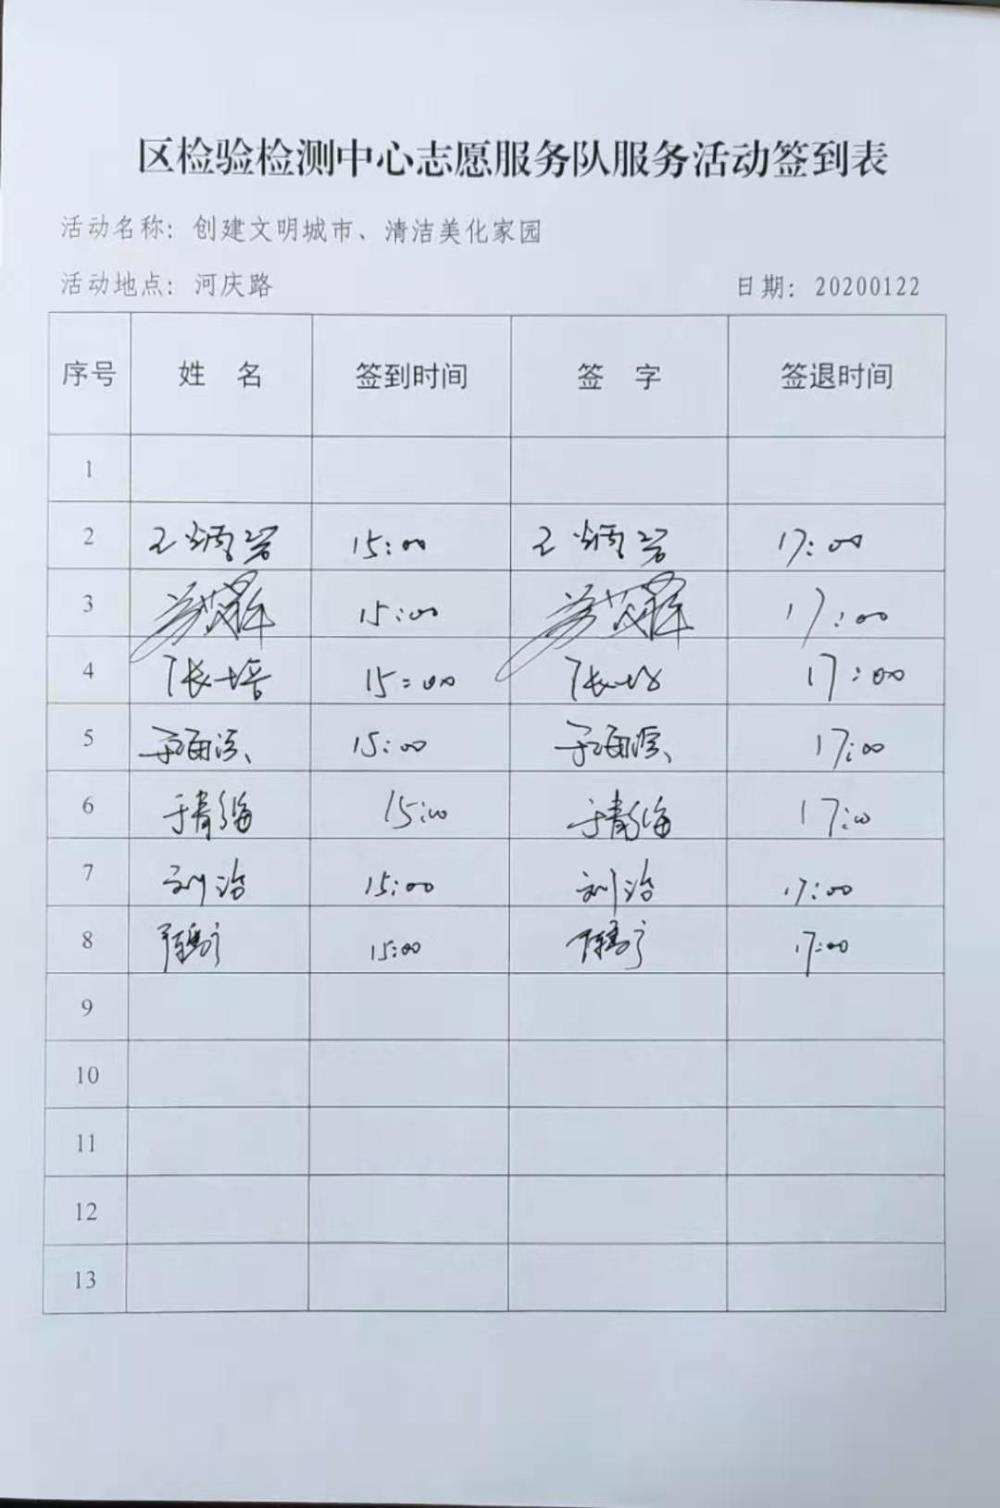 区检验检测中心志愿服务队服务活动签到表
活动名称：创建文明城市、清洁美化家园
活动地点：河庆路 日期：20200122
序号 姓 名 签到时间 签 字 签退时间
1
2 王炳岩 15:00 王炳岩 17:00
3 15:00 17:00
4 张培 15:00 张培 17:00
5 15:00 17:00
6 于青海 15:00 于青海 17:00
7 刘治 15:00 刘治 17:00
8 15:00 17:00
9
10
11
12
13